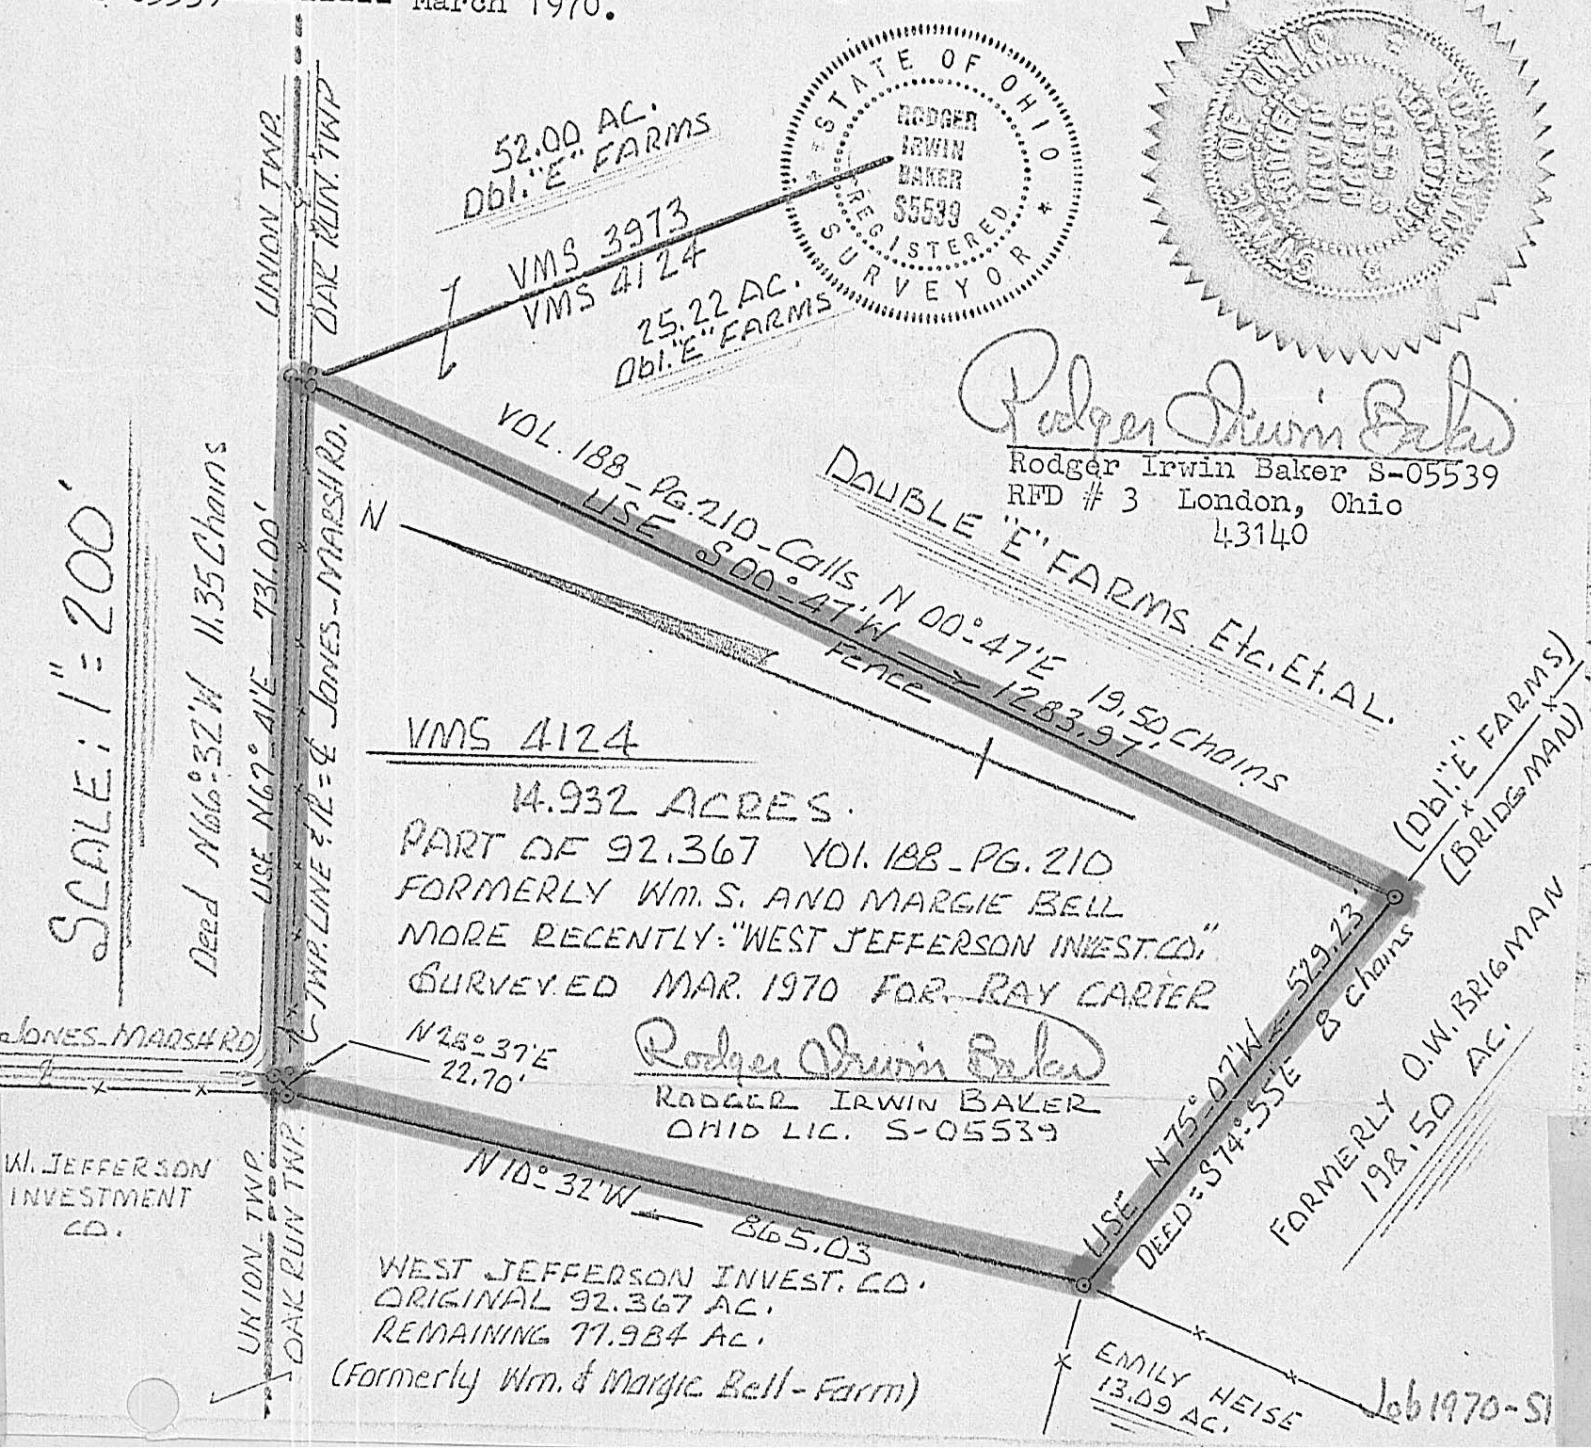 March 1970.
UNION TWP.
OAK RUN. TWP
52.00 AC.
Dbl. "E" FARMS
VMS 3973
VMS 4124
25.22 AC.
Dbl. "E" FARMS
STATE OF OHIO
RODGER
IRWIN
BAKER
S5539
REGISTERED
SURVEYOR
STATE OF OHIO
Rodger Irwin Baker
Rodger Irwin Baker S-05539
RFD # 3 London, Ohio
43140
SCALE: 1"=200'
Deed N66°32'W 11.35 Chains
USE N67°-41'E 731.00'
TWP. LINE & ℄ = ℄ JONES-MARSH RD.
N
VOL. 188-PG. 210-Calls N 00°-47'E 19.50 Chains
USE S 00°-47'W 1283.97'
Fence
DOUBLE "E" FARMS Etc. Et. AL.
(Dbl. "E" FARMS)
(BRIDGMAN)
VMS 4124
14.932 ACRES.
PART OF 92.367 VOL. 188-PG. 210
FORMERLY Wm. S. AND MARGIE BELL
MORE RECENTLY: "WEST JEFFERSON INVEST. CO."
SURVEYED MAR. 1970 FOR RAY CARTER
Rodger Irwin Baker
RODGER IRWIN BAKER
OHIO LIC. S-05539
JONES-MARSH RD
N 28°-37'E
22.70'
USE N 75°-07'W 529.23'
DEED = S74°-55'E 8 Chains
FORMERLY O.W. BRIGMAN
198.50 AC.
W. JEFFERSON
INVESTMENT
CO.
UNION-TWP.
OAK RUN TWP.
N 10°-32'W 865.03
WEST JEFFERSON INVEST. CO.
ORIGINAL 92.367 AC.
REMAINING 77.984 AC.
(Formerly Wm. & Margie Bell-Farm)
EMILY HEISE
13.09 AC.
Job 1970-51